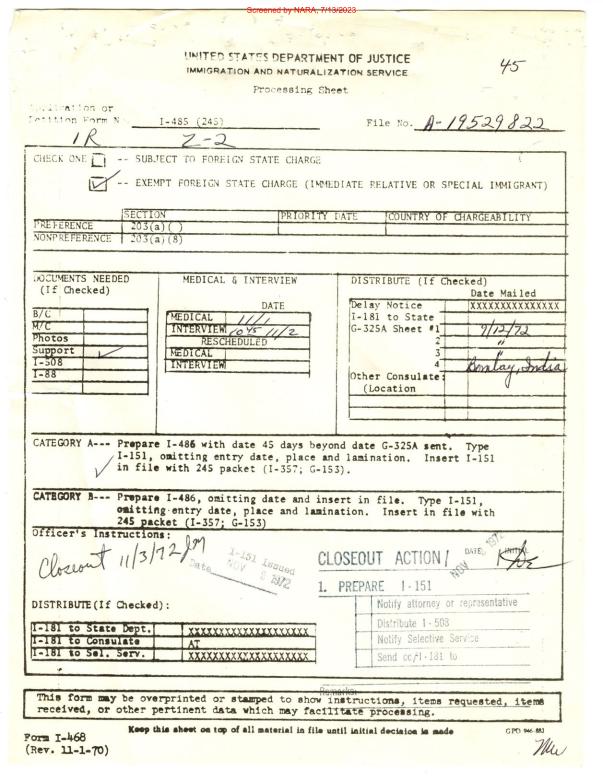 Screened by NARA, 7/13/2023
UNITED STATES DEPARTMENT OF JUSTICE
IMMIGRATION AND NATURALIZATION SERVICE
45
Processing Sheet
Application or
Petition Form N I-485 (245) File No. A-19529822
1R Z-2
CHECK ONE -- SUBJECT TO FOREIGN STATE CHARGE
-- EXEMPT FOREIGN STATE CHARGE (IMMEDIATE RELATIVE OR SPECIAL IMMIGRANT)
SECTION PRIORITY DATE COUNTRY OF CHARGEABILITY
PREFERENCE 203(a)( )
NONPREFERENCE 203(a)(8)
DOCUMENTS NEEDED
(If Checked)
B/C
M/C
Photos
Support
I-508
I-88
MEDICAL & INTERVIEW
DATE
MEDICAL 11/1
INTERVIEW 1045 11/2
RESCHEDULED
MEDICAL
INTERVIEW
DISTRIBUTE (If Checked)
Date Mailed
Delay Notice XXXXXXXXXXXXXXX
I-181 to State
G-325A Sheet #1 9/12/72
2 "
3
4 Bombay, India
Other Consulate:
(Location
CATEGORY A--- Prepare I-486 with date 45 days beyond date G-325A sent. Type
I-151, omitting entry date, place and lamination. Insert I-151
in file with 245 packet (I-357; G-153).
CATEGORY B--- Prepare I-486, omitting date and insert in file. Type I-151,
omitting entry date, place and lamination. Insert in file with
245 packet (I-357; G-153)
Officer's Instructions:
Closeout 11/3/72
I-151 Issued
Date NOV 8 1972
CLOSEOUT ACTION/ DATE, INITIAL
NOV 1972
1. PREPARE I-151
Notify attorney or representative
Distribute I-508
Notify Selective Service
Send cc/I-181 to
DISTRIBUTE(If Checked):
I-181 to State Dept. XXXXXXXXXXXXXXXXXXXX
I-181 to Consulate AT
I-181 to Sel. Serv. XXXXXXXXXXXXXXXXXXXX
Remarks:
This form may be overprinted or stamped to show instructions, items requested, items
received, or other pertinent data which may facilitate processing.
Form I-468
(Rev. 11-1-70)
Keep this sheet on top of all material in file until initial decision is made
GPO 946-883